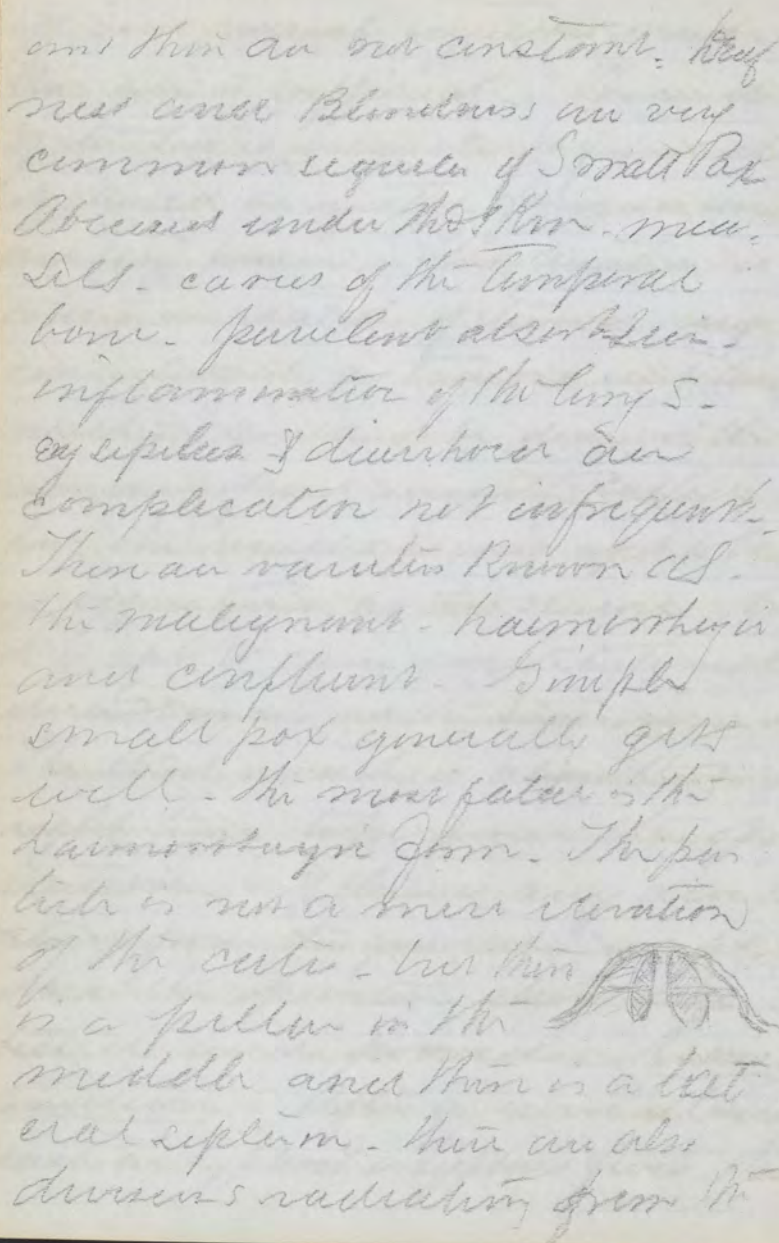 and there are not constant. Deaf
ness and Blindness are very
common sequela of Small Pox
Abcesses under the Skin - mea-
sels - caries of the temporal
bone - purulent absorbtion -
inflammation of the lungs -
erysipelas & diarrhoea are
complication not infrequent -
There are varieties Known as -
the malignant - haemorrhagic
and confluent - Simple
small pox generally gets
well - the most fatal is the
haemorrhagic form - The pus
tule is not a mere elevation
of the cutis - but there
is a pillar in the
middle and there is a lat
eral septum - there are also
divisions radiating from the